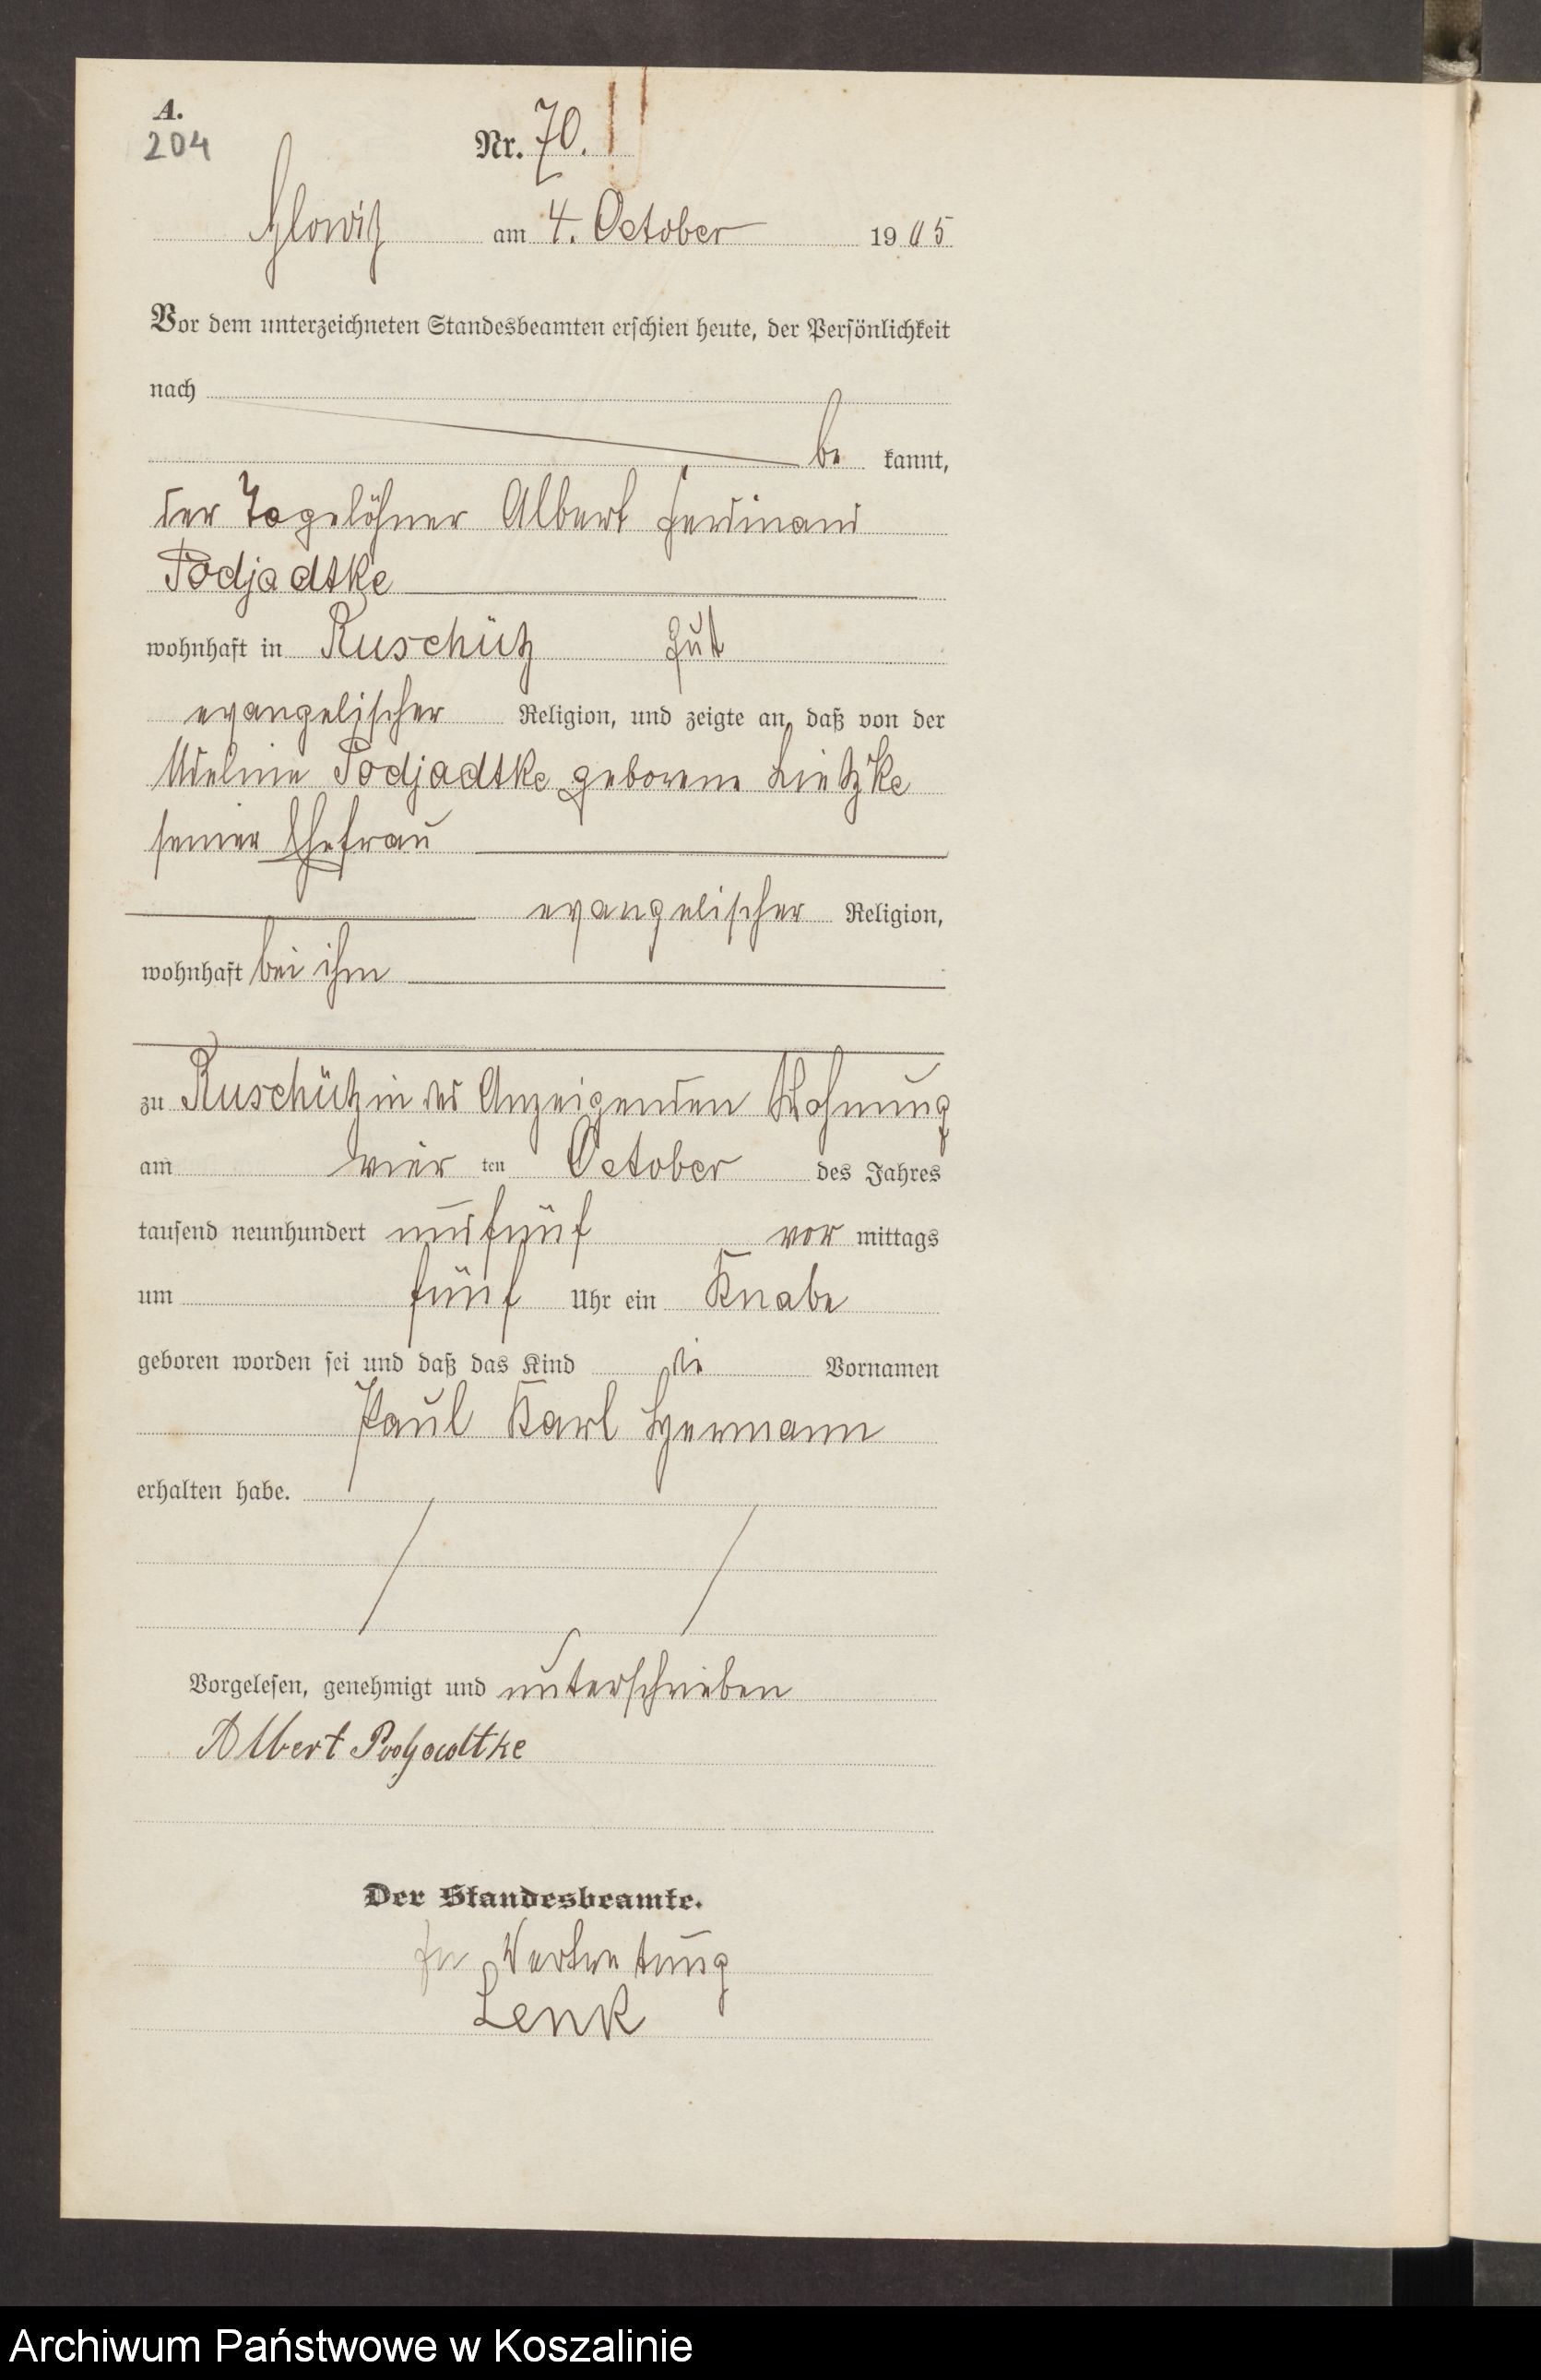 A.
204
Nr. 70.
Glowitz am 4. October 1905
Vor dem unterzeichneten Standesbeamten erschien heute, der Persönlichkeit
nach
be kannt,
der Tagelöhner Albert Ferdinand
Podjadtke
wohnhaft in Ruschütz Gut
evangelischer Religion, und zeigte an, daß von der
Adeline Podjadtke geborene Lietzke
seiner Ehefrau
evangelischer Religion,
wohnhaft bei ihm
zu Ruschütz in des Anzeigenden Wohnung
am vier ten October des Jahres
tausend neunhundert und fünf vor mittags
um fünf Uhr ein Knabe
geboren worden sei und daß das Kind die Vornamen
Paul Karl Hermann
erhalten habe.
Vorgelesen, genehmigt und unterschrieben
Albert Podjadtke
Der Standesbeamte.
In Vertretung
Lenk
Archiwum Państwowe w Koszalinie